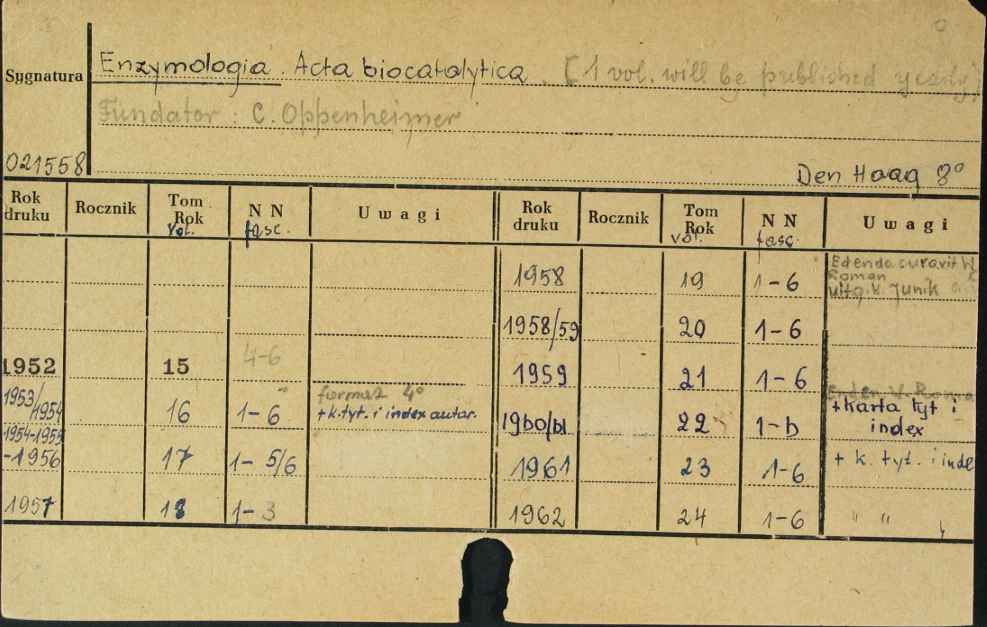 Sygnatura
Enzymologia. Acta biocatalytica. (1 vol. will be published yearly)
Fundator: C. Oppenheimer
021558
Den Haag 8°
Rok druku Rocznik Tom Rok vol. N N fasc. Uwagi Rok druku Rocznik Tom Rok vol. N N fasc. Uwagi
1958 19 1-6 Edenda curavit W. Roman
uitg. v. Junk
1958/59 20 1-6
1952 15 4-6 1959 21 1-6
1953/1954 16 1-6 format 4° + k. tyt. i index autor. 1960/61 22 1-6 + karta tyt i index
1954-1955-1956 17 1-5/6 1961 23 1-6 + k. tyt. i inde
1957 18 1-3 1962 24 1-6 " " "